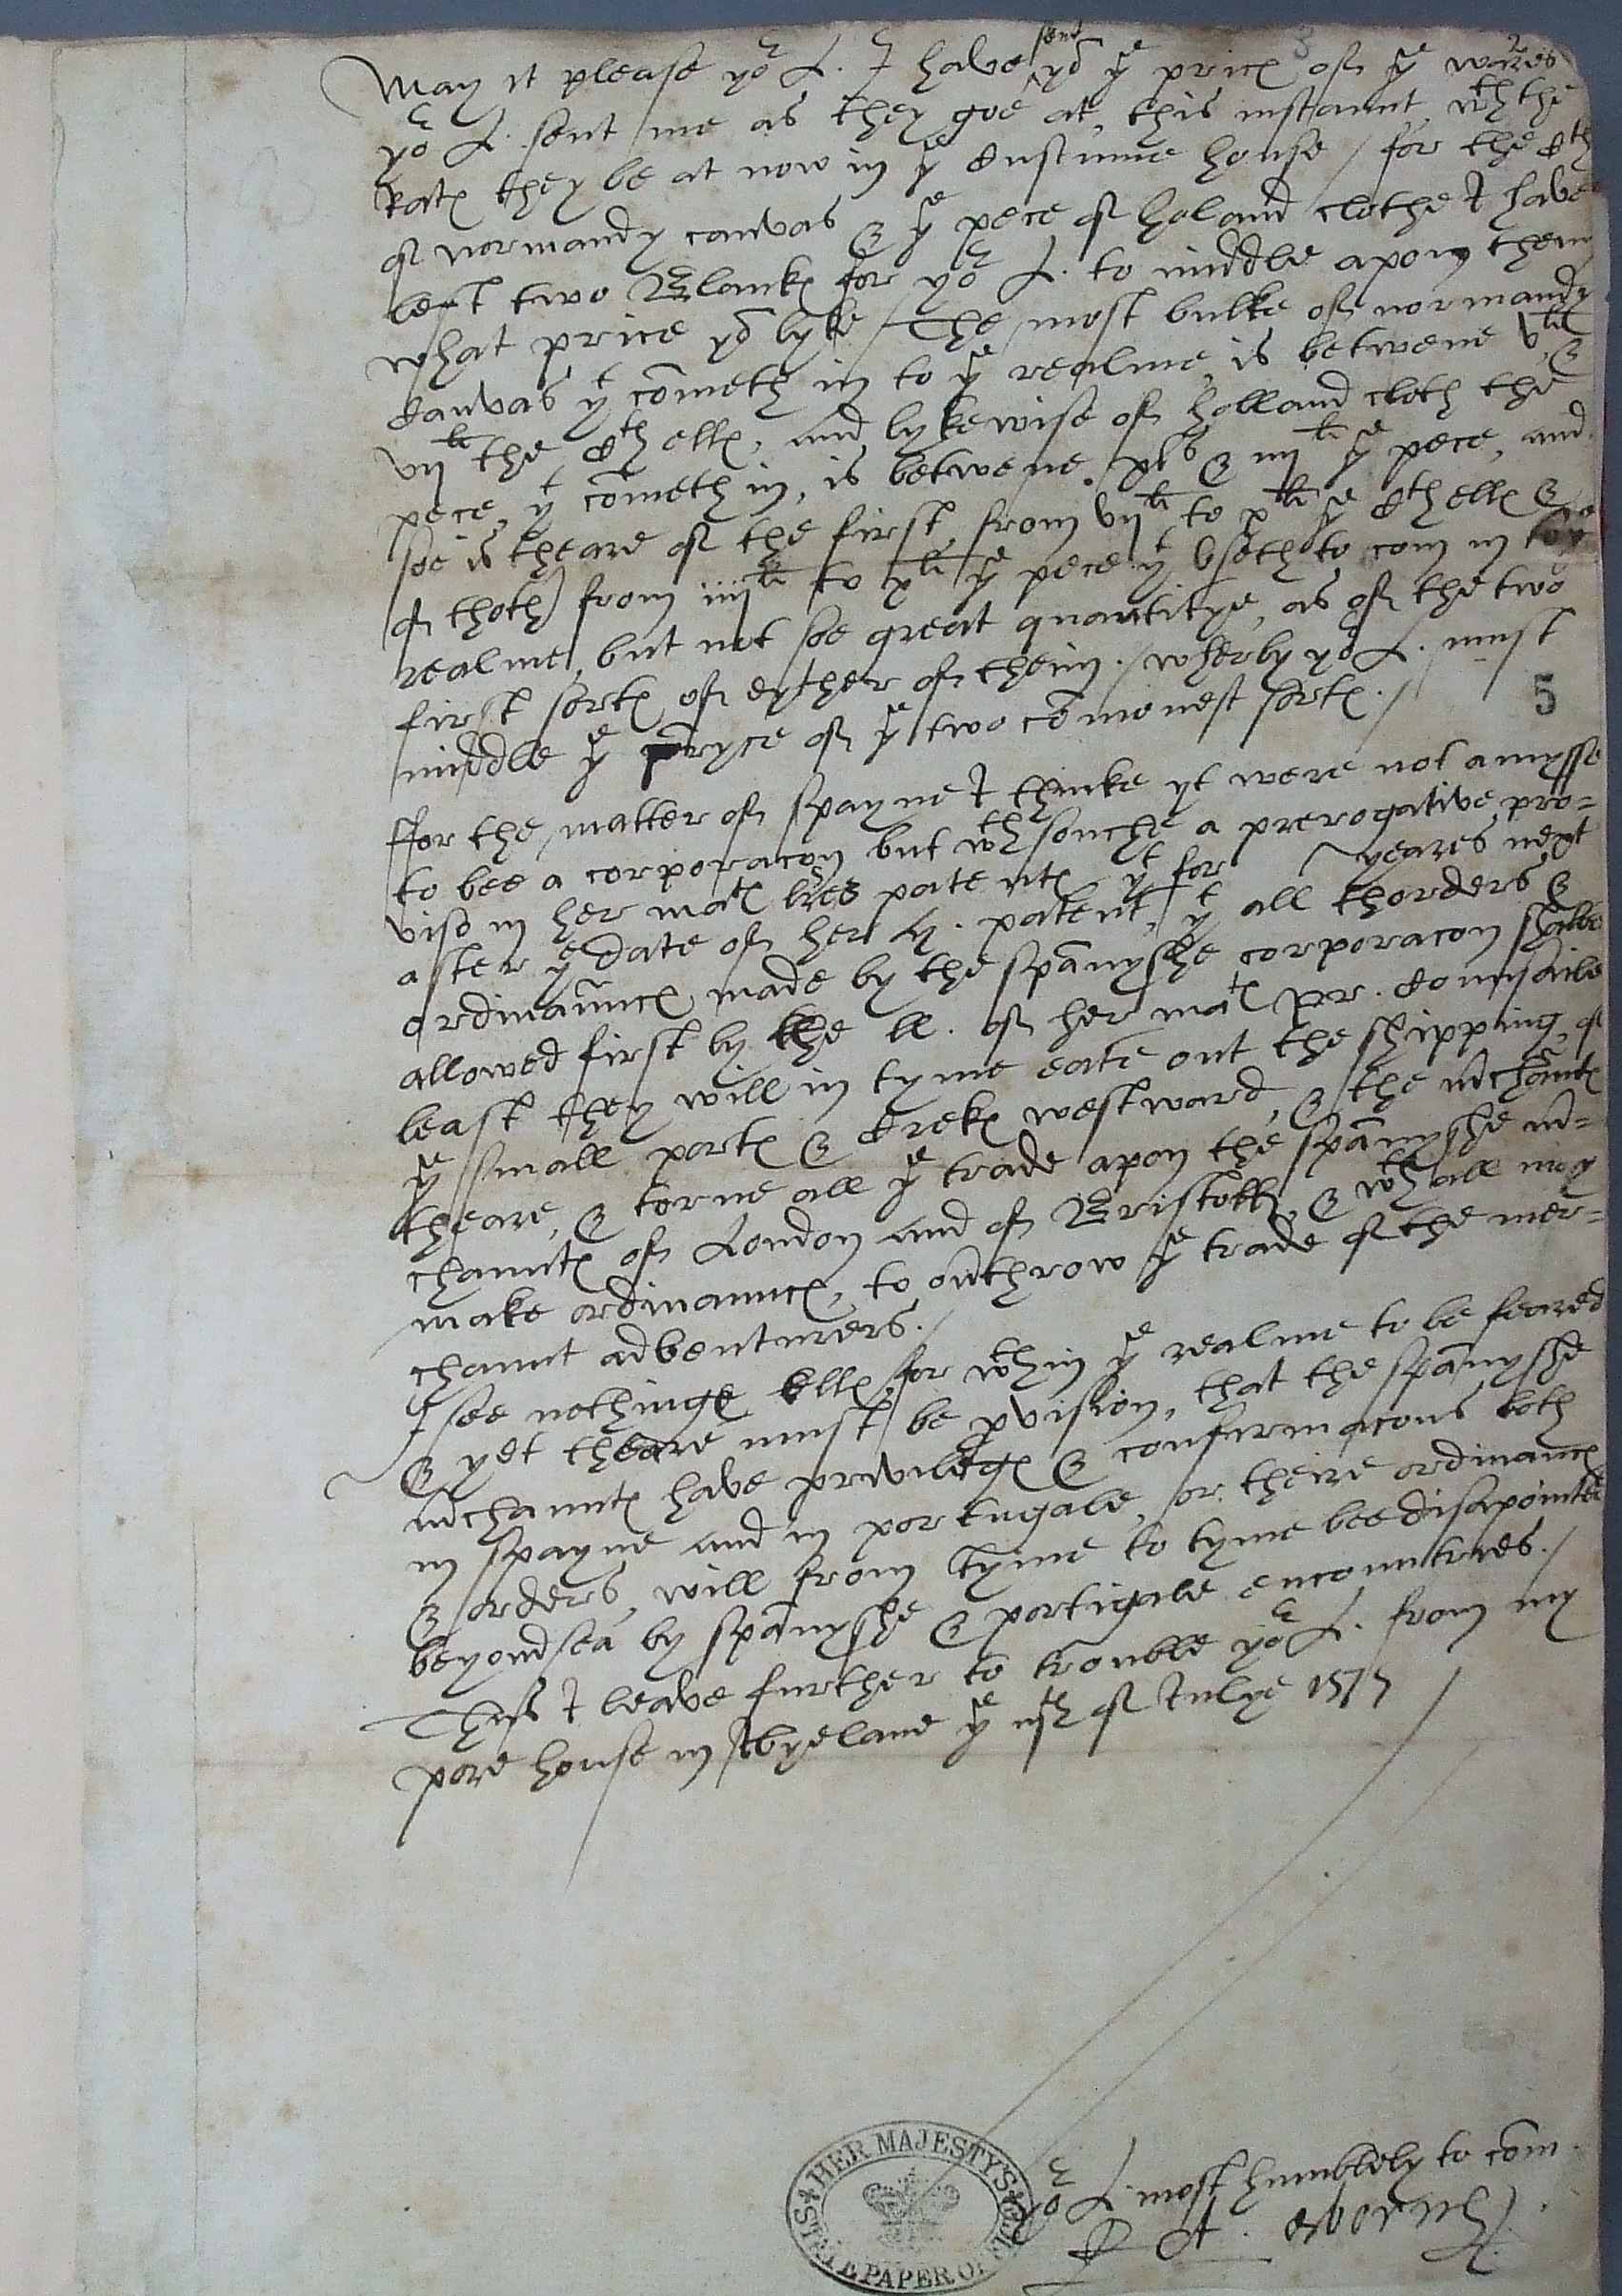 May it please yor L. I have send yō ye pricꝭ of ye wares
yor L. sent me as they goe at this instaunt, wth the
ratꝭ they be at now in ye Custume house / for the Cth
of normandy canvas & ye pece of Holand clothe I have
left two Blankꝭ for yor L. to middle apon them
what price yō lyke / The most bulke of normandy
Canvas yt cōmeth in to ye realme, is betwene vli &
vijli the Cth ellꝭ, and lykewise of holland cloth the
pece, yt cōmeth in, is betwene. xls & iijli ye pece, and
soe is theare of the first, from vijli to xli ye Cth ellꝭ &
of thoth from iiijli to xli ye pece yt vseth to com in to ye
realme, but not soe great quantitye, as of the two
first sortꝭ of eyther of theim. / wherby yor L. must
middle ye pryce of ye two cōmonest sortꝭ. /
5
ffor the matter of Spayne I thinke yt were not amysse
to bee a corporacon but wth souche a prerogative pro=
viso in her matꝭ lres patentꝭ yt for yeares next
after ye date of her h. patent, yt all thorders &
ordinaunncꝭ made by the spānyshe corporacon shalbe
allowed first by the ll. of her matꝭ pr. Counsaile
least they will in tyme eate out the shipping of
ye small portꝭ & Crekꝭ westward, & the mchāntꝭ
theare, & torne all ye trade apon the spānyshe m=
chauntꝭ of London and of Bristoll, & wth all may
make ordinaunncꝭ, to outhrow ye trade of the mer=
chaunt adventurers. /
I see nothinge ellꝭ for wthin ye realme to be feared
& yet theare must be pvision, that the spānyshe
mchauntꝭ have privilegꝭ & confirmacons both
in spayne and in portugale, or theire ordinancꝭ
& orders, will from tyme to tyme bee disapointed
beyond sea by spānyshe & portigale encountries. /
Thus I leave further to trouble yor L. from my
pore house in the ye of Julye 1577 /
yor L. most humblely to cōm.
HER MAJESTY'S
STATE PAPER OFFICE